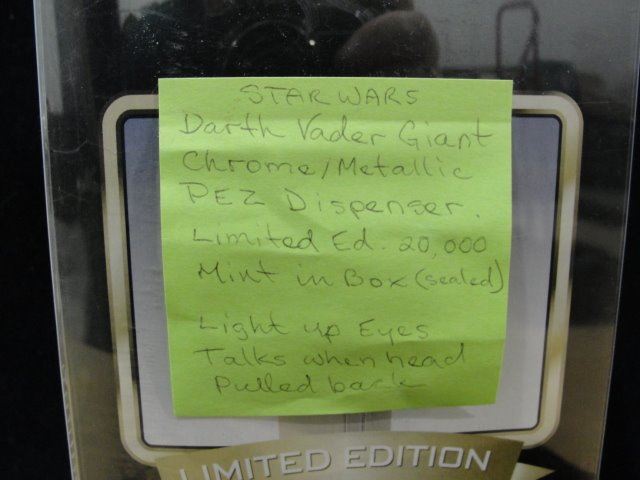 STAR WARS
Darth Vader Giant
Chrome/Metallic
PEZ Dispenser.
Limited Ed. 20,000
Mint in Box (sealed)
Light up Eyes
Talks when head
Pulled back
LIMITED EDITION